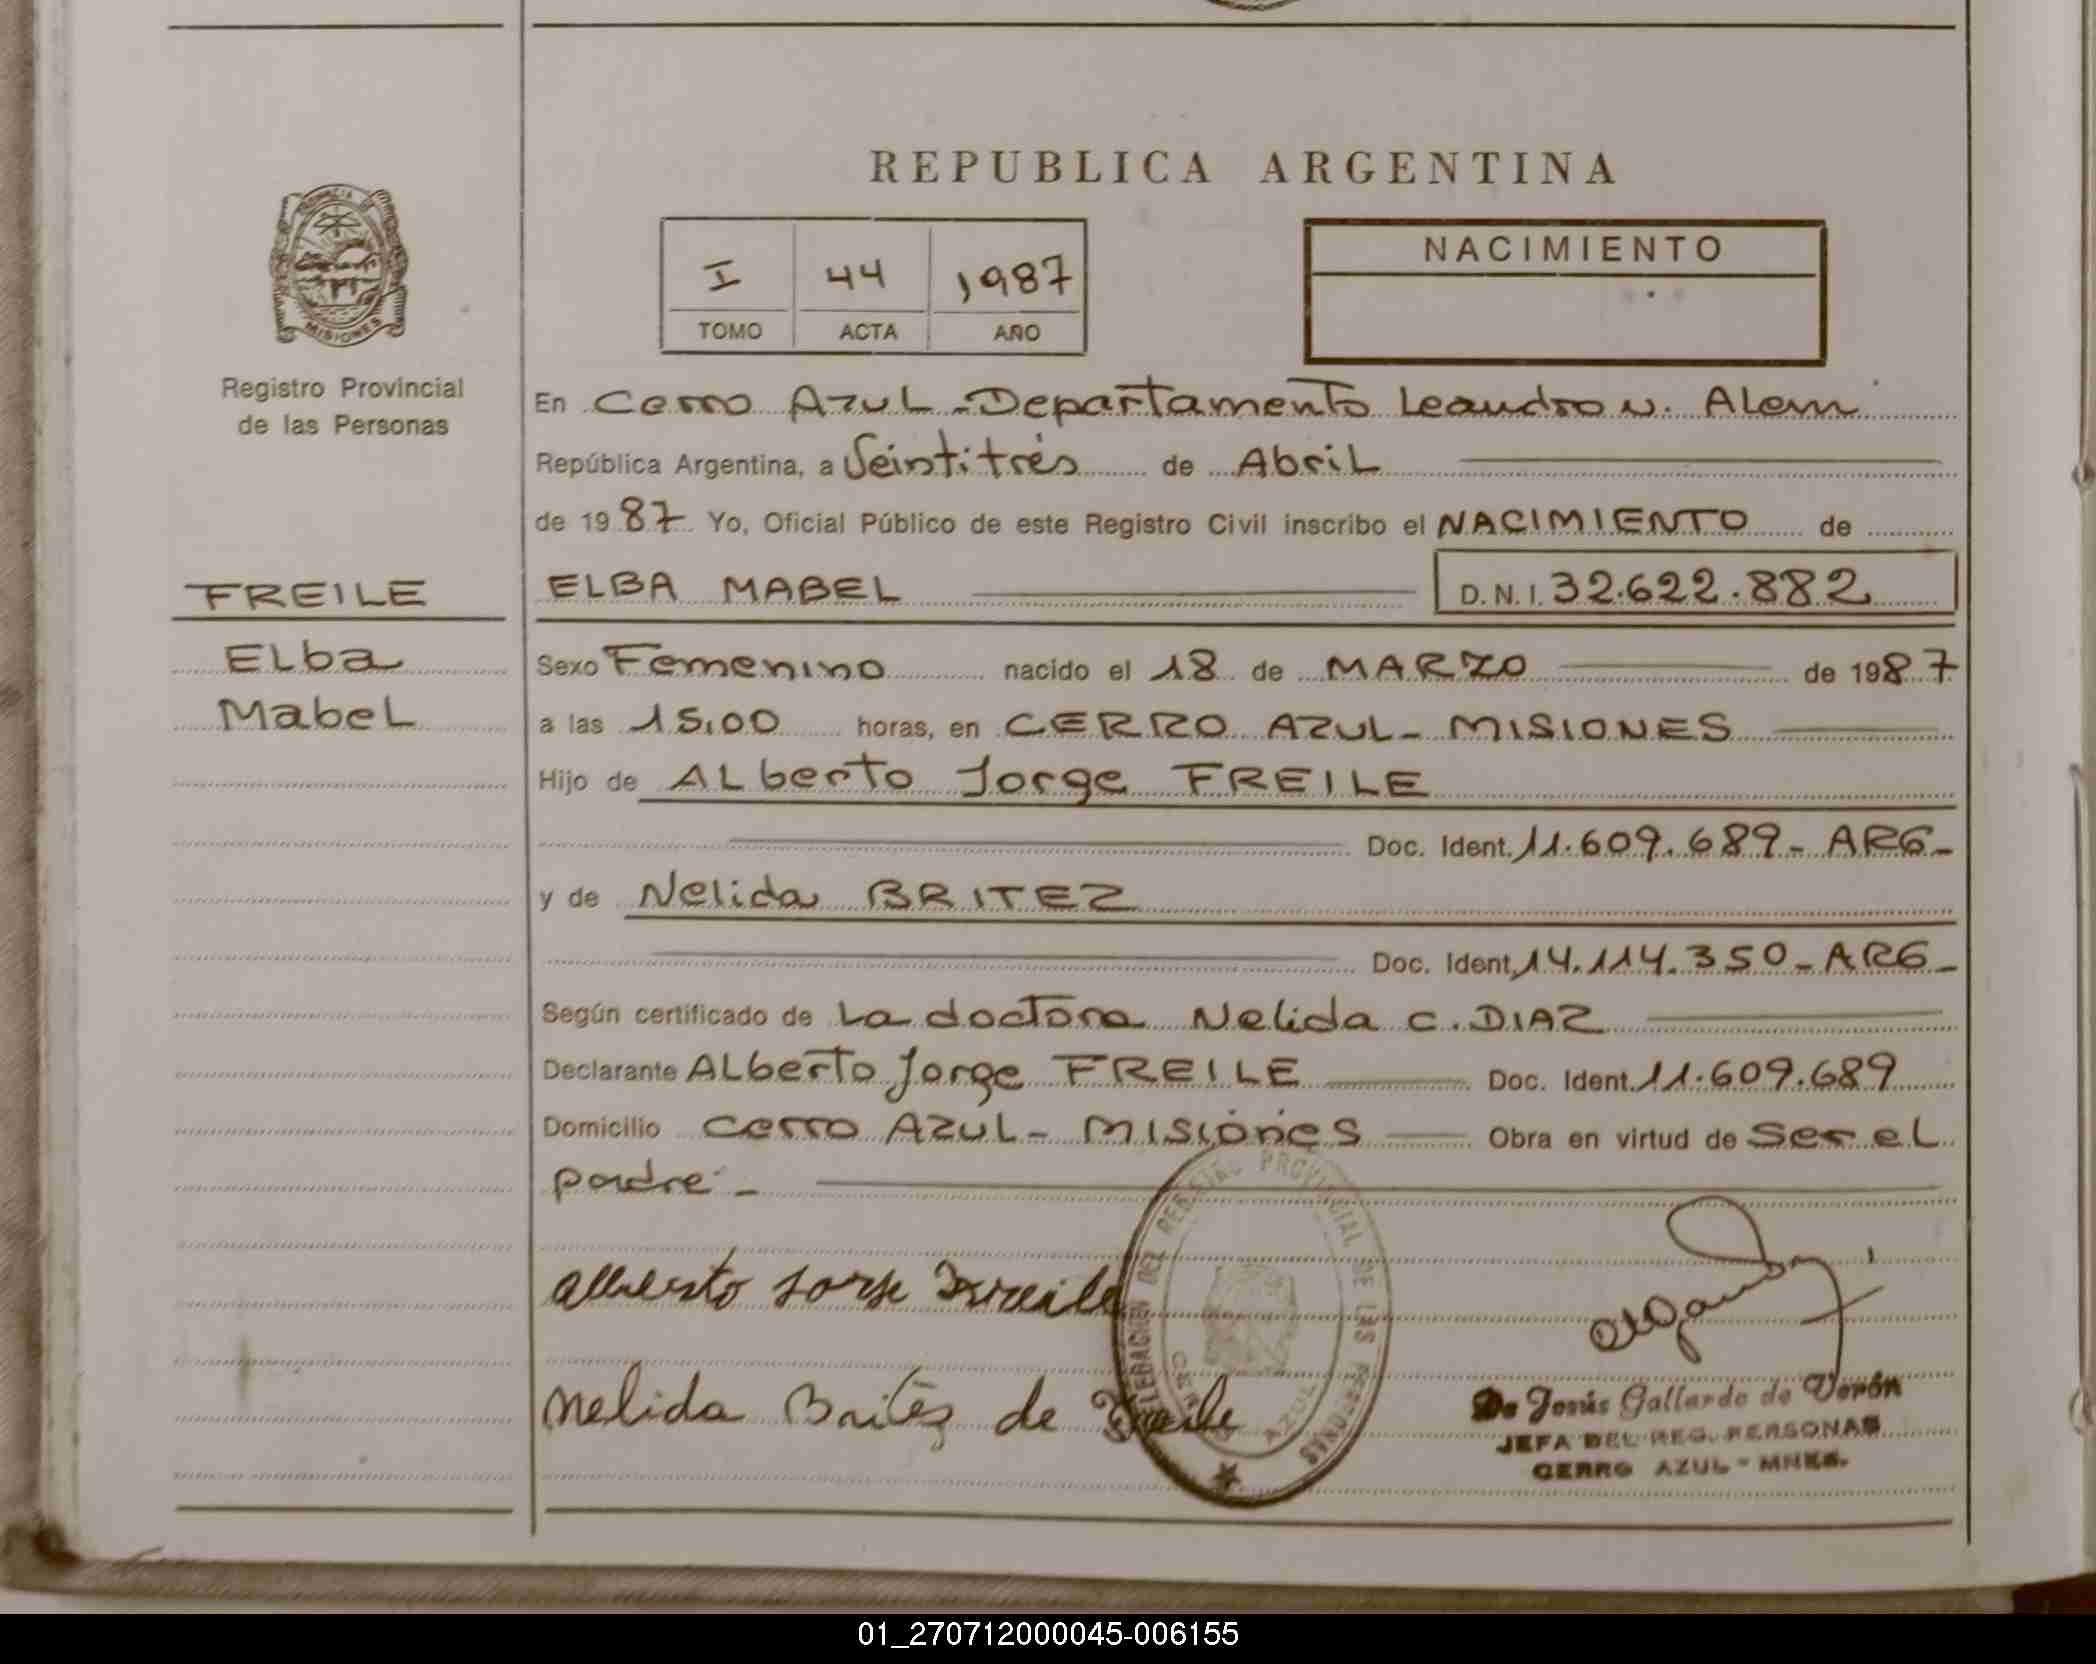 REPUBLICA ARGENTINA
PROVINCIA DE
MISIONES
Registro Provincial
de las Personas
I 44 1987
TOMO ACTA AÑO
NACIMIENTO
En Cerro Azul - Departamento Leandro N. Alem
República Argentina, a Veintitrés de Abril
de 1987 Yo, Oficial Público de este Registro Civil inscribo el NACIMIENTO de
FREILE
Elba
Mabel
ELBA MABEL D.N.I. 32.622.882
Sexo Femenino nacido el 18 de MARZO de 1987
a las 15,00 horas, en CERRO AZUL - MISIONES
Hijo de Alberto Jorge FREILE
Doc. Ident. 11.609.689 - ARG -
y de Nelida BRITEZ
Doc. Ident. 14.114.350 - ARG -
Según certificado de La doctora Nelida C. DIAZ
Declarante Alberto Jorge FREILE Doc. Ident. 11.609.689
Domicilio Cerro Azul - Misiones Obra en virtud de Ser el
padre. -
Alberto Jorge Freile
Nelida Britez de Freile
DEL REGISTRO PROVINCIAL DE LAS PERSONAS
CERRO AZUL
De Jesús Gallardo de Verón
JEFA DEL REG. PERSONAS
CERRO AZUL - MNES.
01_270712000045-006155